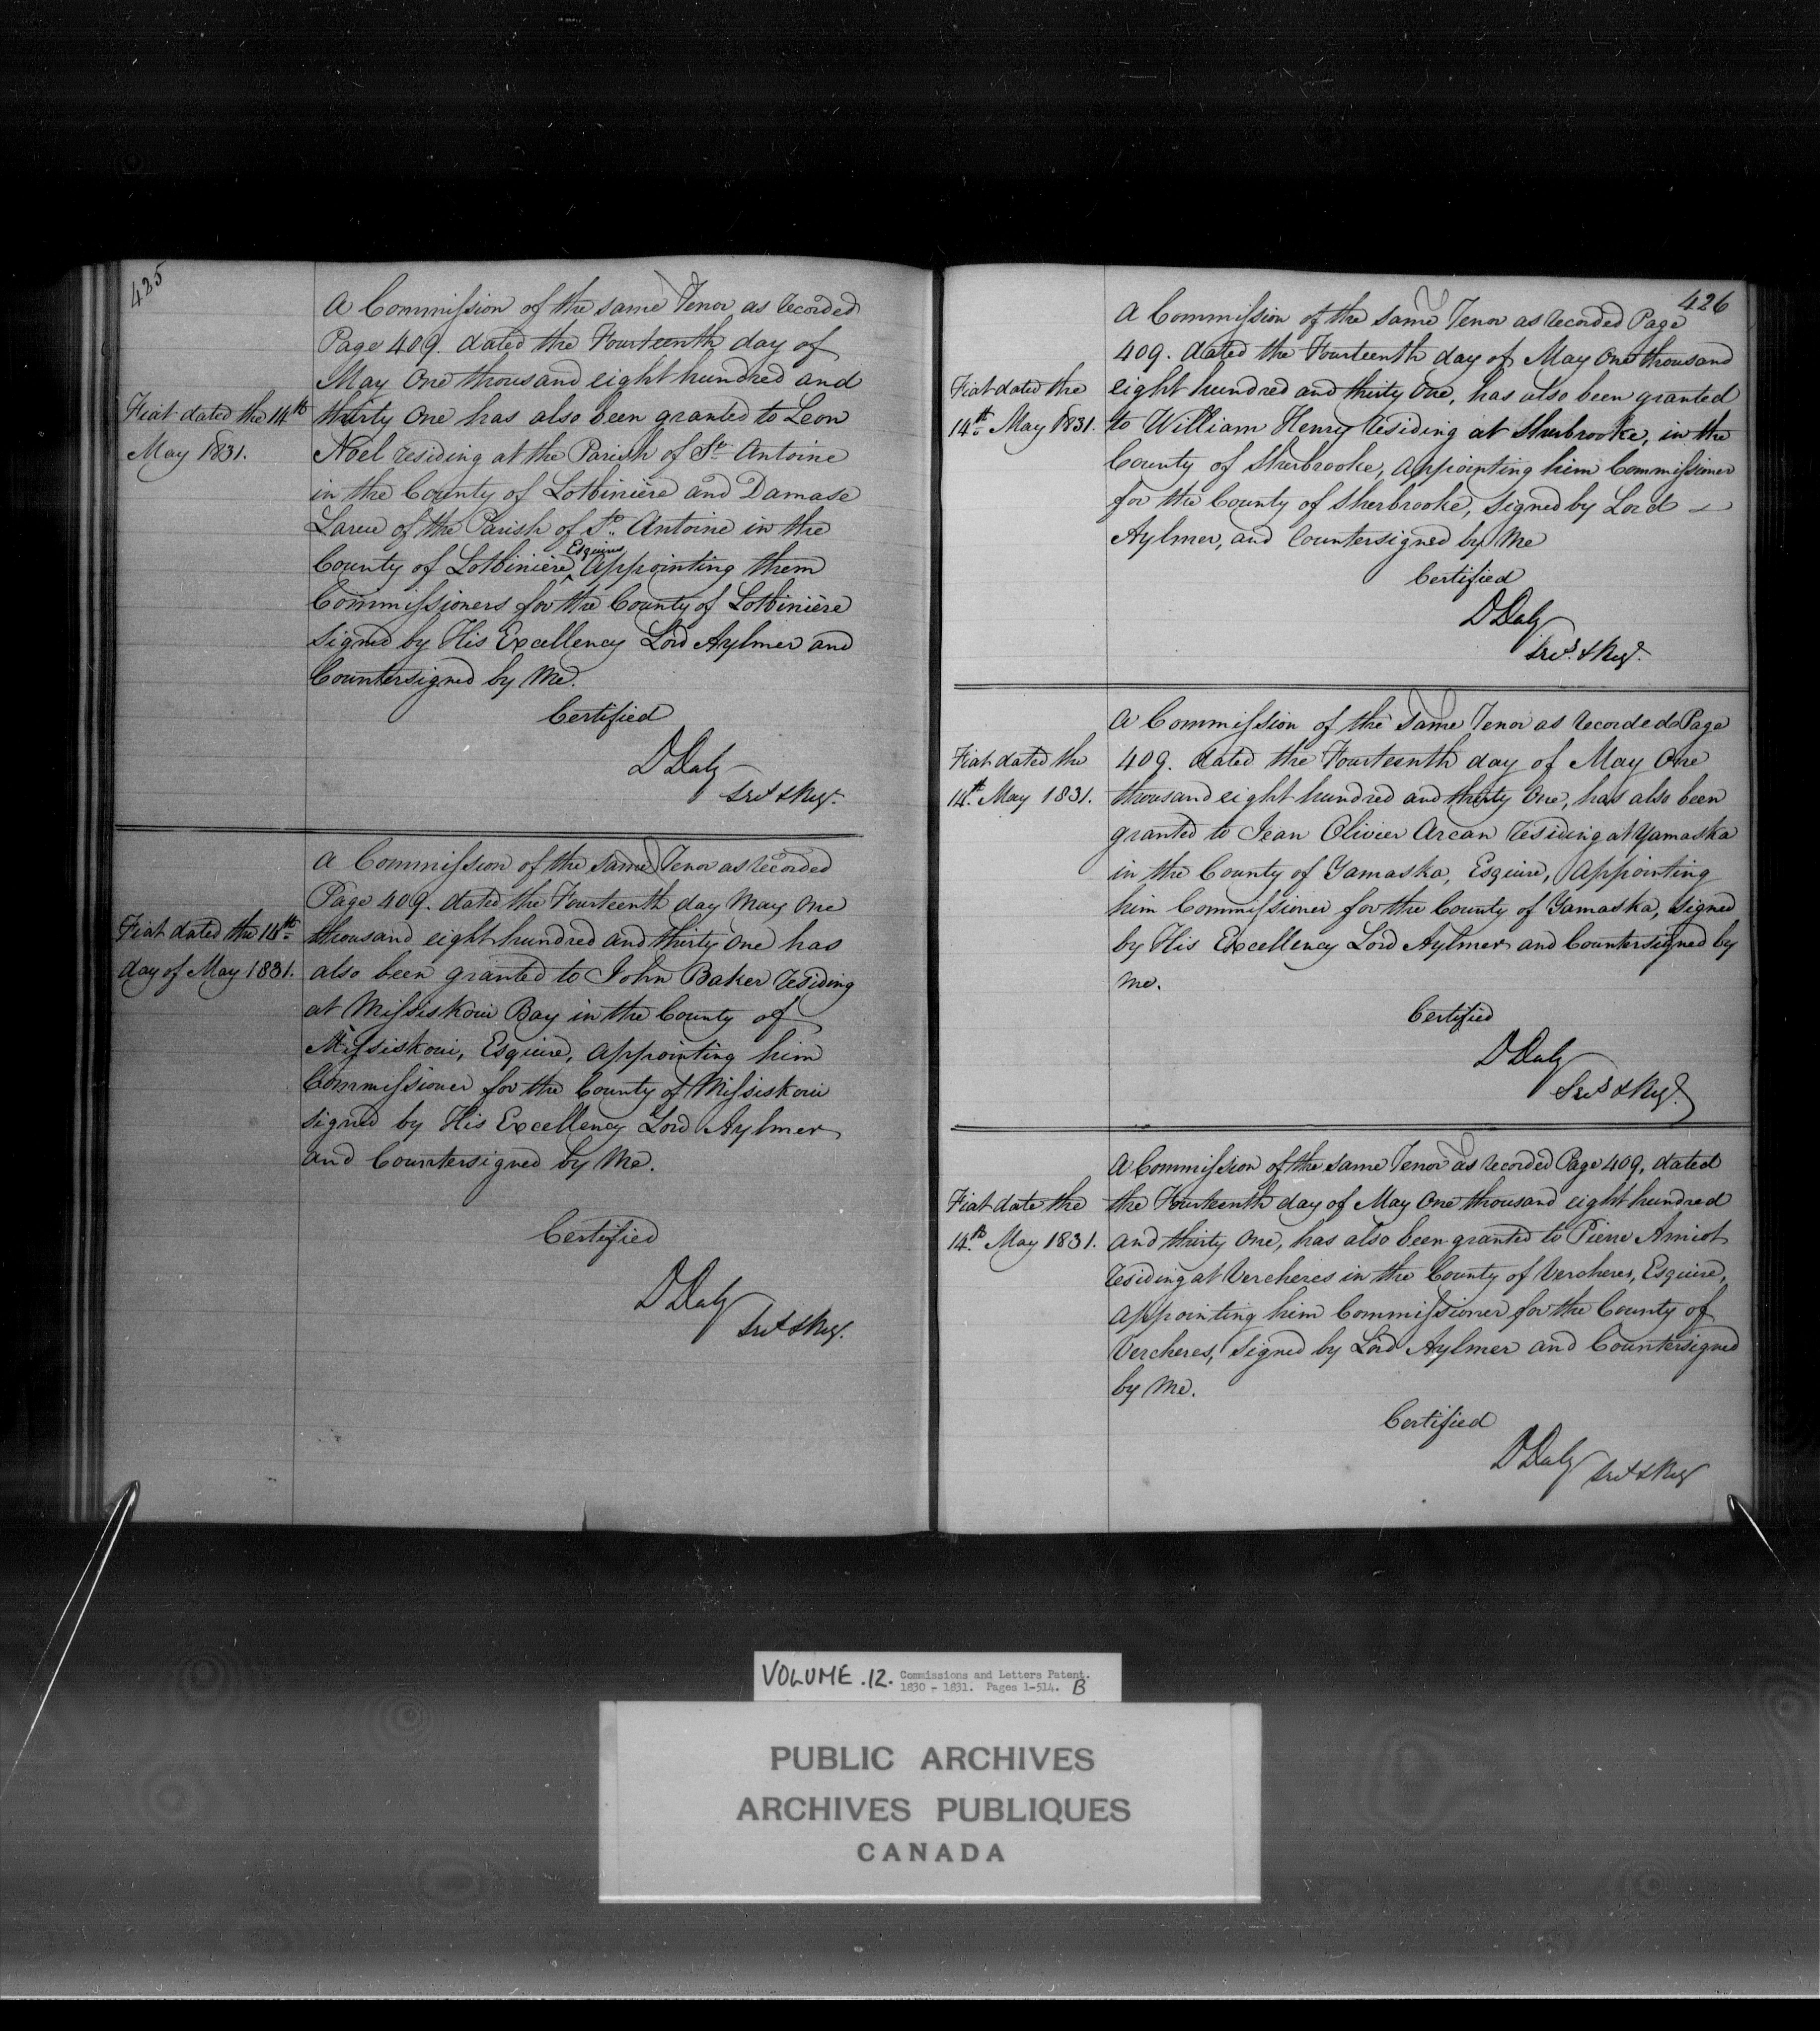 425
A Commission of the same Tenor as recorded
Page 409. dated the Fourteenth day of
May One thousand eight hundred and
Fiat dated the 14th thirty One has also been granted to Leon
May 1831. Noel residing at the Parish of St. Antoine
in the County of Lotbinière and Damase
Larue of the Parish of St. Antoine in the
County of Lotbinière ^Esquires Appointing them
Commissioners for the County of Lotbinière
Signed by His Excellency Lord Aylmer and
Countersigned by Me.
Certified
D Daly
Secy & Regr.
A Commission of the same Tenor as recorded
Page 409. dated the Fourteenth day May One
Fiat dated the 14th thousand eight hundred and thirty One has
day of May 1831. also been granted to John Baker residing
at Missiskoui Bay in the County of
Missiskoui, Esquire, Appointing him
Commissioner for the County of Missiskoui
signed by His Excellency Lord Aylmer
and Countersigned by Me.
Certified
D Daly
Secy & Regr.
426
A Commission of the same Tenor as recorded Page
409. dated the Fourteenth day of May One thousand
Fiat dated the eight hundred and thirty One, has also been granted
14th May 1831. to William Henry residing at Sherbrooke, in the
County of Sherbrooke, Appointing him Commissioner
for the County of Sherbrooke, Signed by Lord
Aylmer, and Countersigned by Me
Certified
D Daly
Secy. & Regr.
A Commission of the same Tenor as recorded Page
Fiat dated the 409. dated the Fourteenth day of May One
14th. May 1831. thousand eight hundred and thirty One, has also been
granted to Jean Olivier Arcan residing at Yamaska
in the County of Yamaska, Esquire, Appointing
him Commissioner for the County of Yamaska, Signed
by His Excellency Lord Aylmer and Countersigned by
Me.
Certified
D Daly
Secy & Regr.
A Commission of the same Tenor as recorded Page 409, dated
Fiat date the the Fourteenth day of May One thousand eight hundred
14th. May 1831. and thirty One, has also been granted to Pierre Amiot
residing at Vercheres in the County of Vercheres, Esquire,
Appointing him Commissioner for the County of
Vercheres, Signed by Lord Aylmer and Countersigned
by Me.
Certified
D Daly Secy & Regr
VOLUME.12. Commissions and Letters Patent.
1830 - 1831. Pages 1-514. B
PUBLIC ARCHIVES
ARCHIVES PUBLIQUES
CANADA